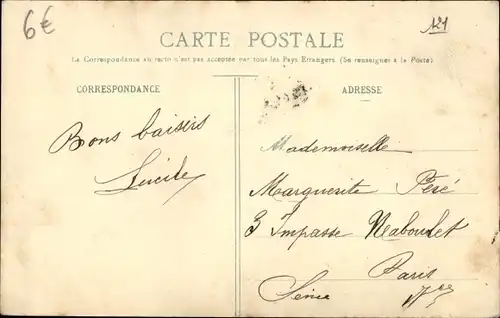 6€
121
CARTE POSTALE
La Correspondance au recto n'est pas acceptée par tous les Pays Etrangers. (Se renseigner à la Poste)
CORRESPONDANCE
ADRESSE
Bons baisers
Lucile
Mademoiselle
Marguerite Péré
3 Impasse Naboulet
Paris
Seine